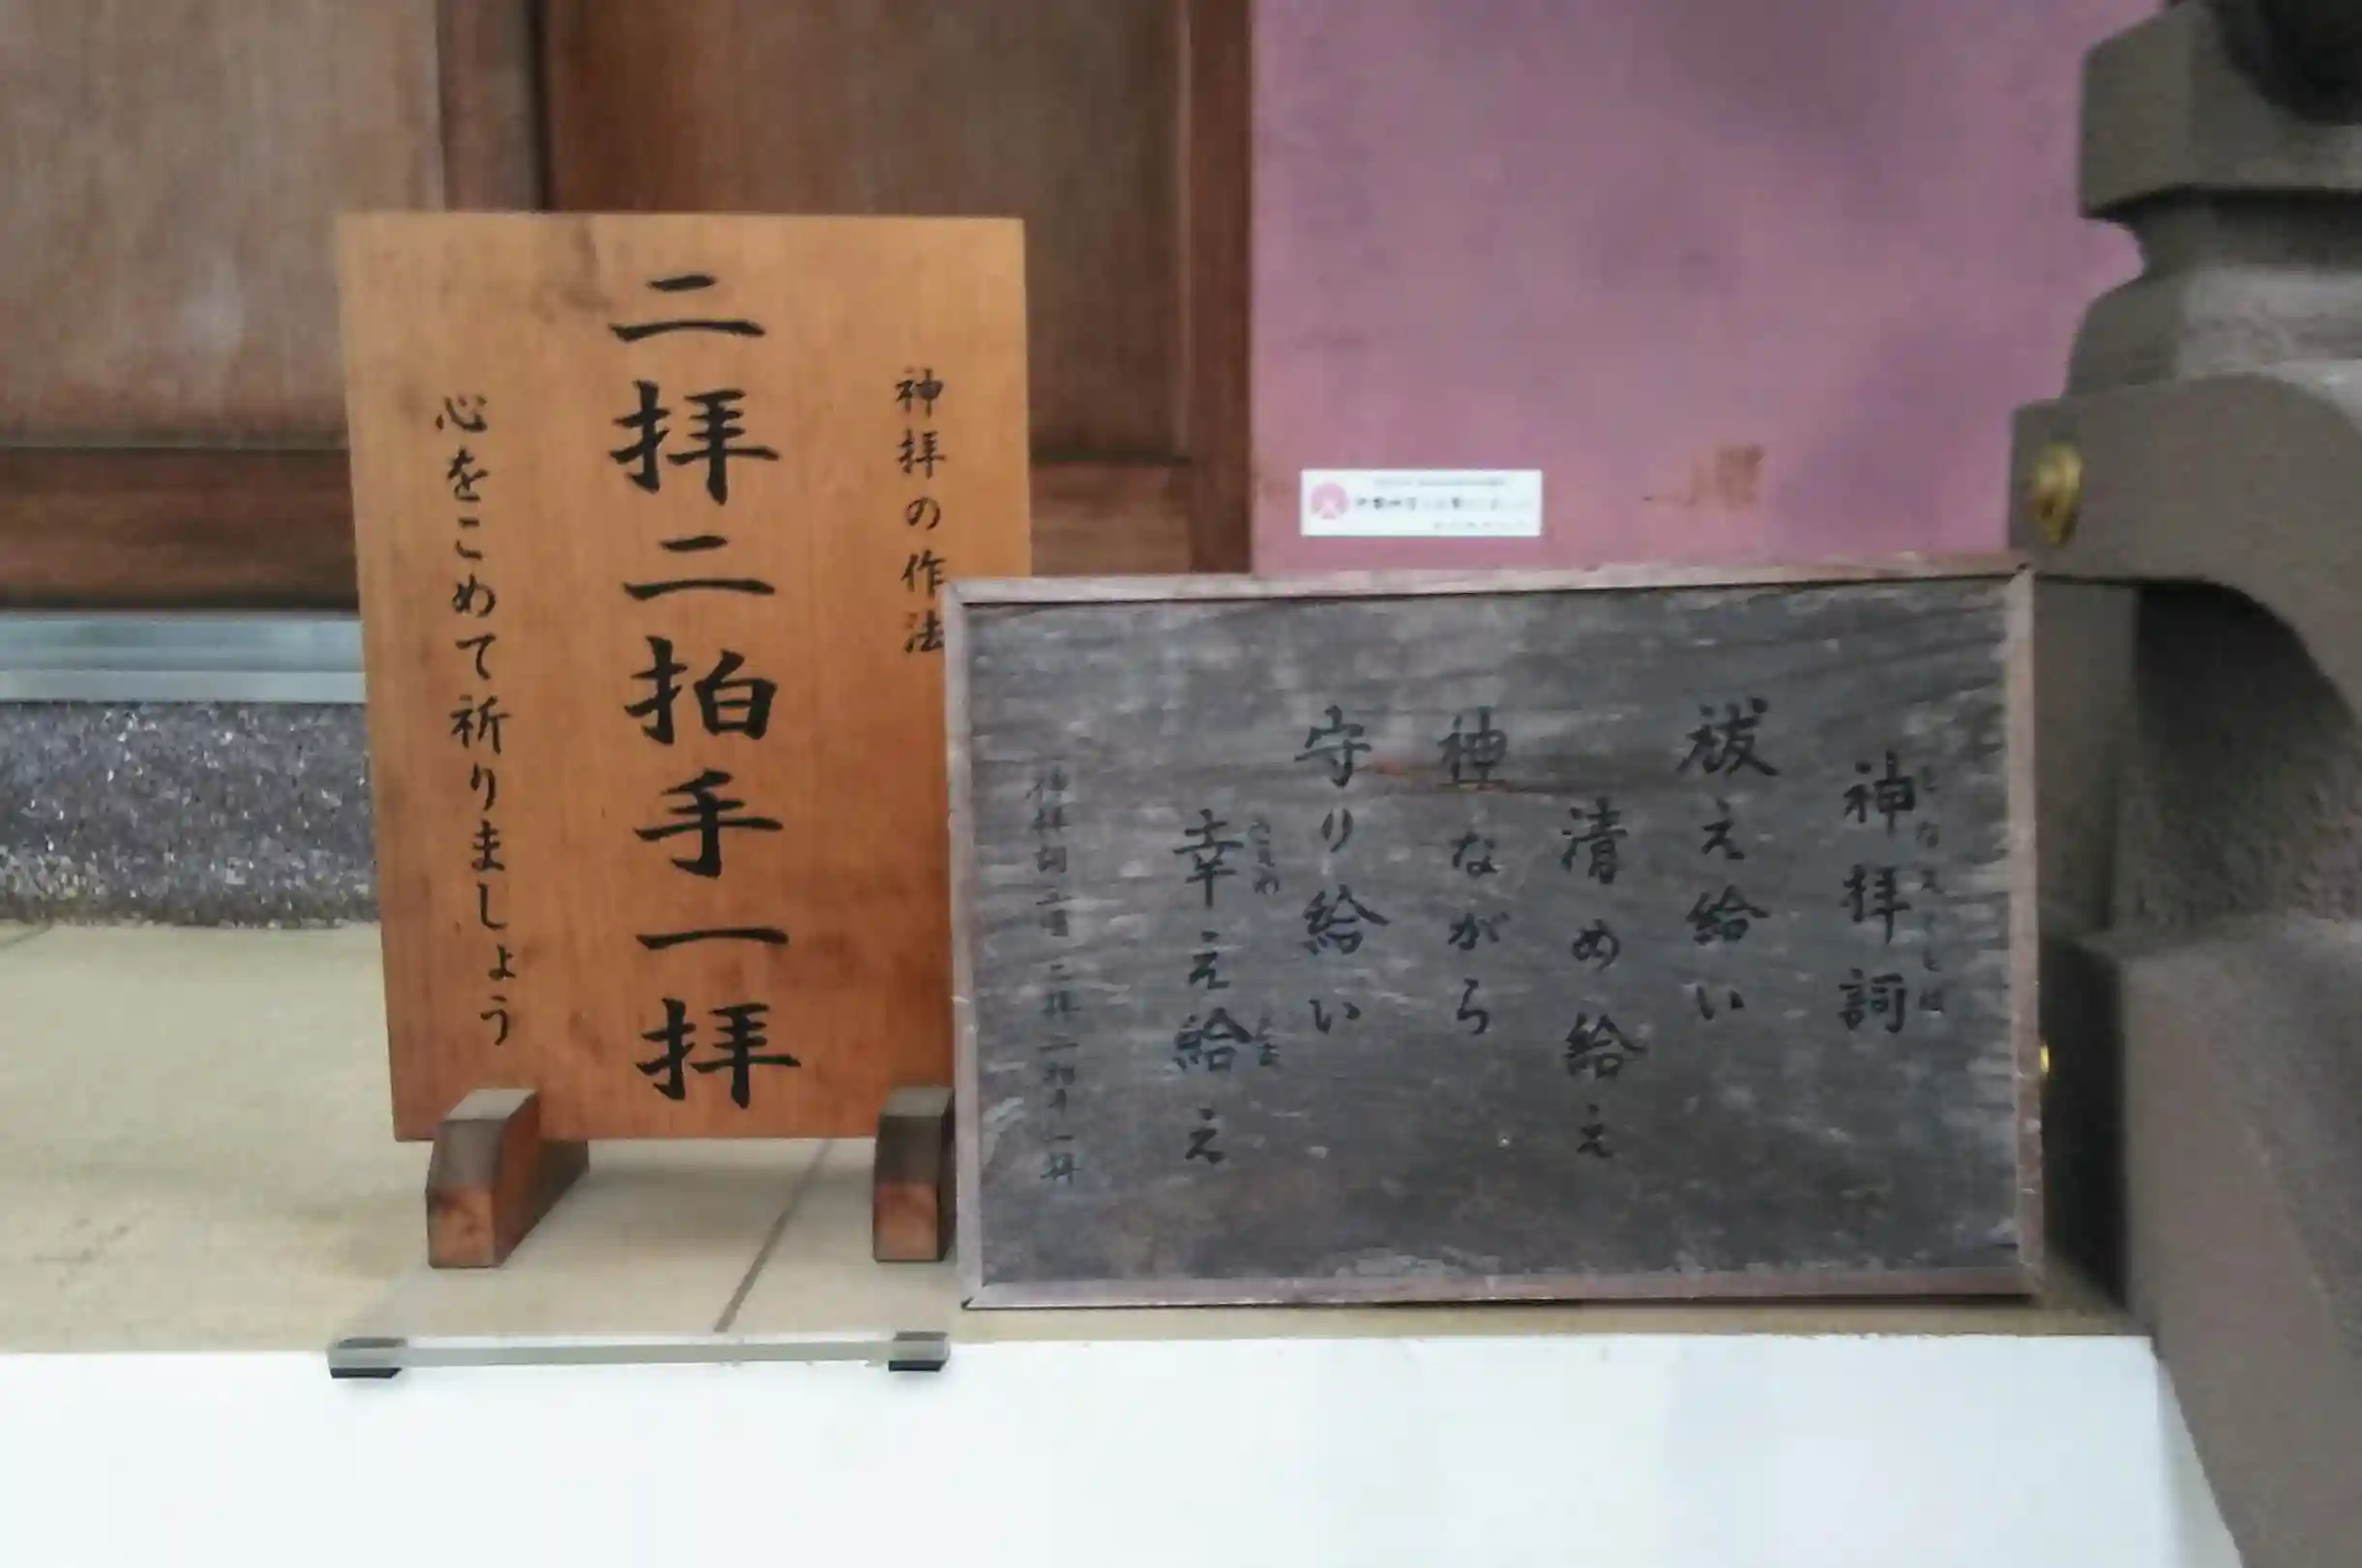 神拝の作法
二拝二拍手一拝
心をこめて祈りましょう
神拝詞
となえことば
祓え給い
清め給え
神ながら
守り給い
幸え給え
さきわ
たま
神拝詞二唱 二拝 二拍手 一拝